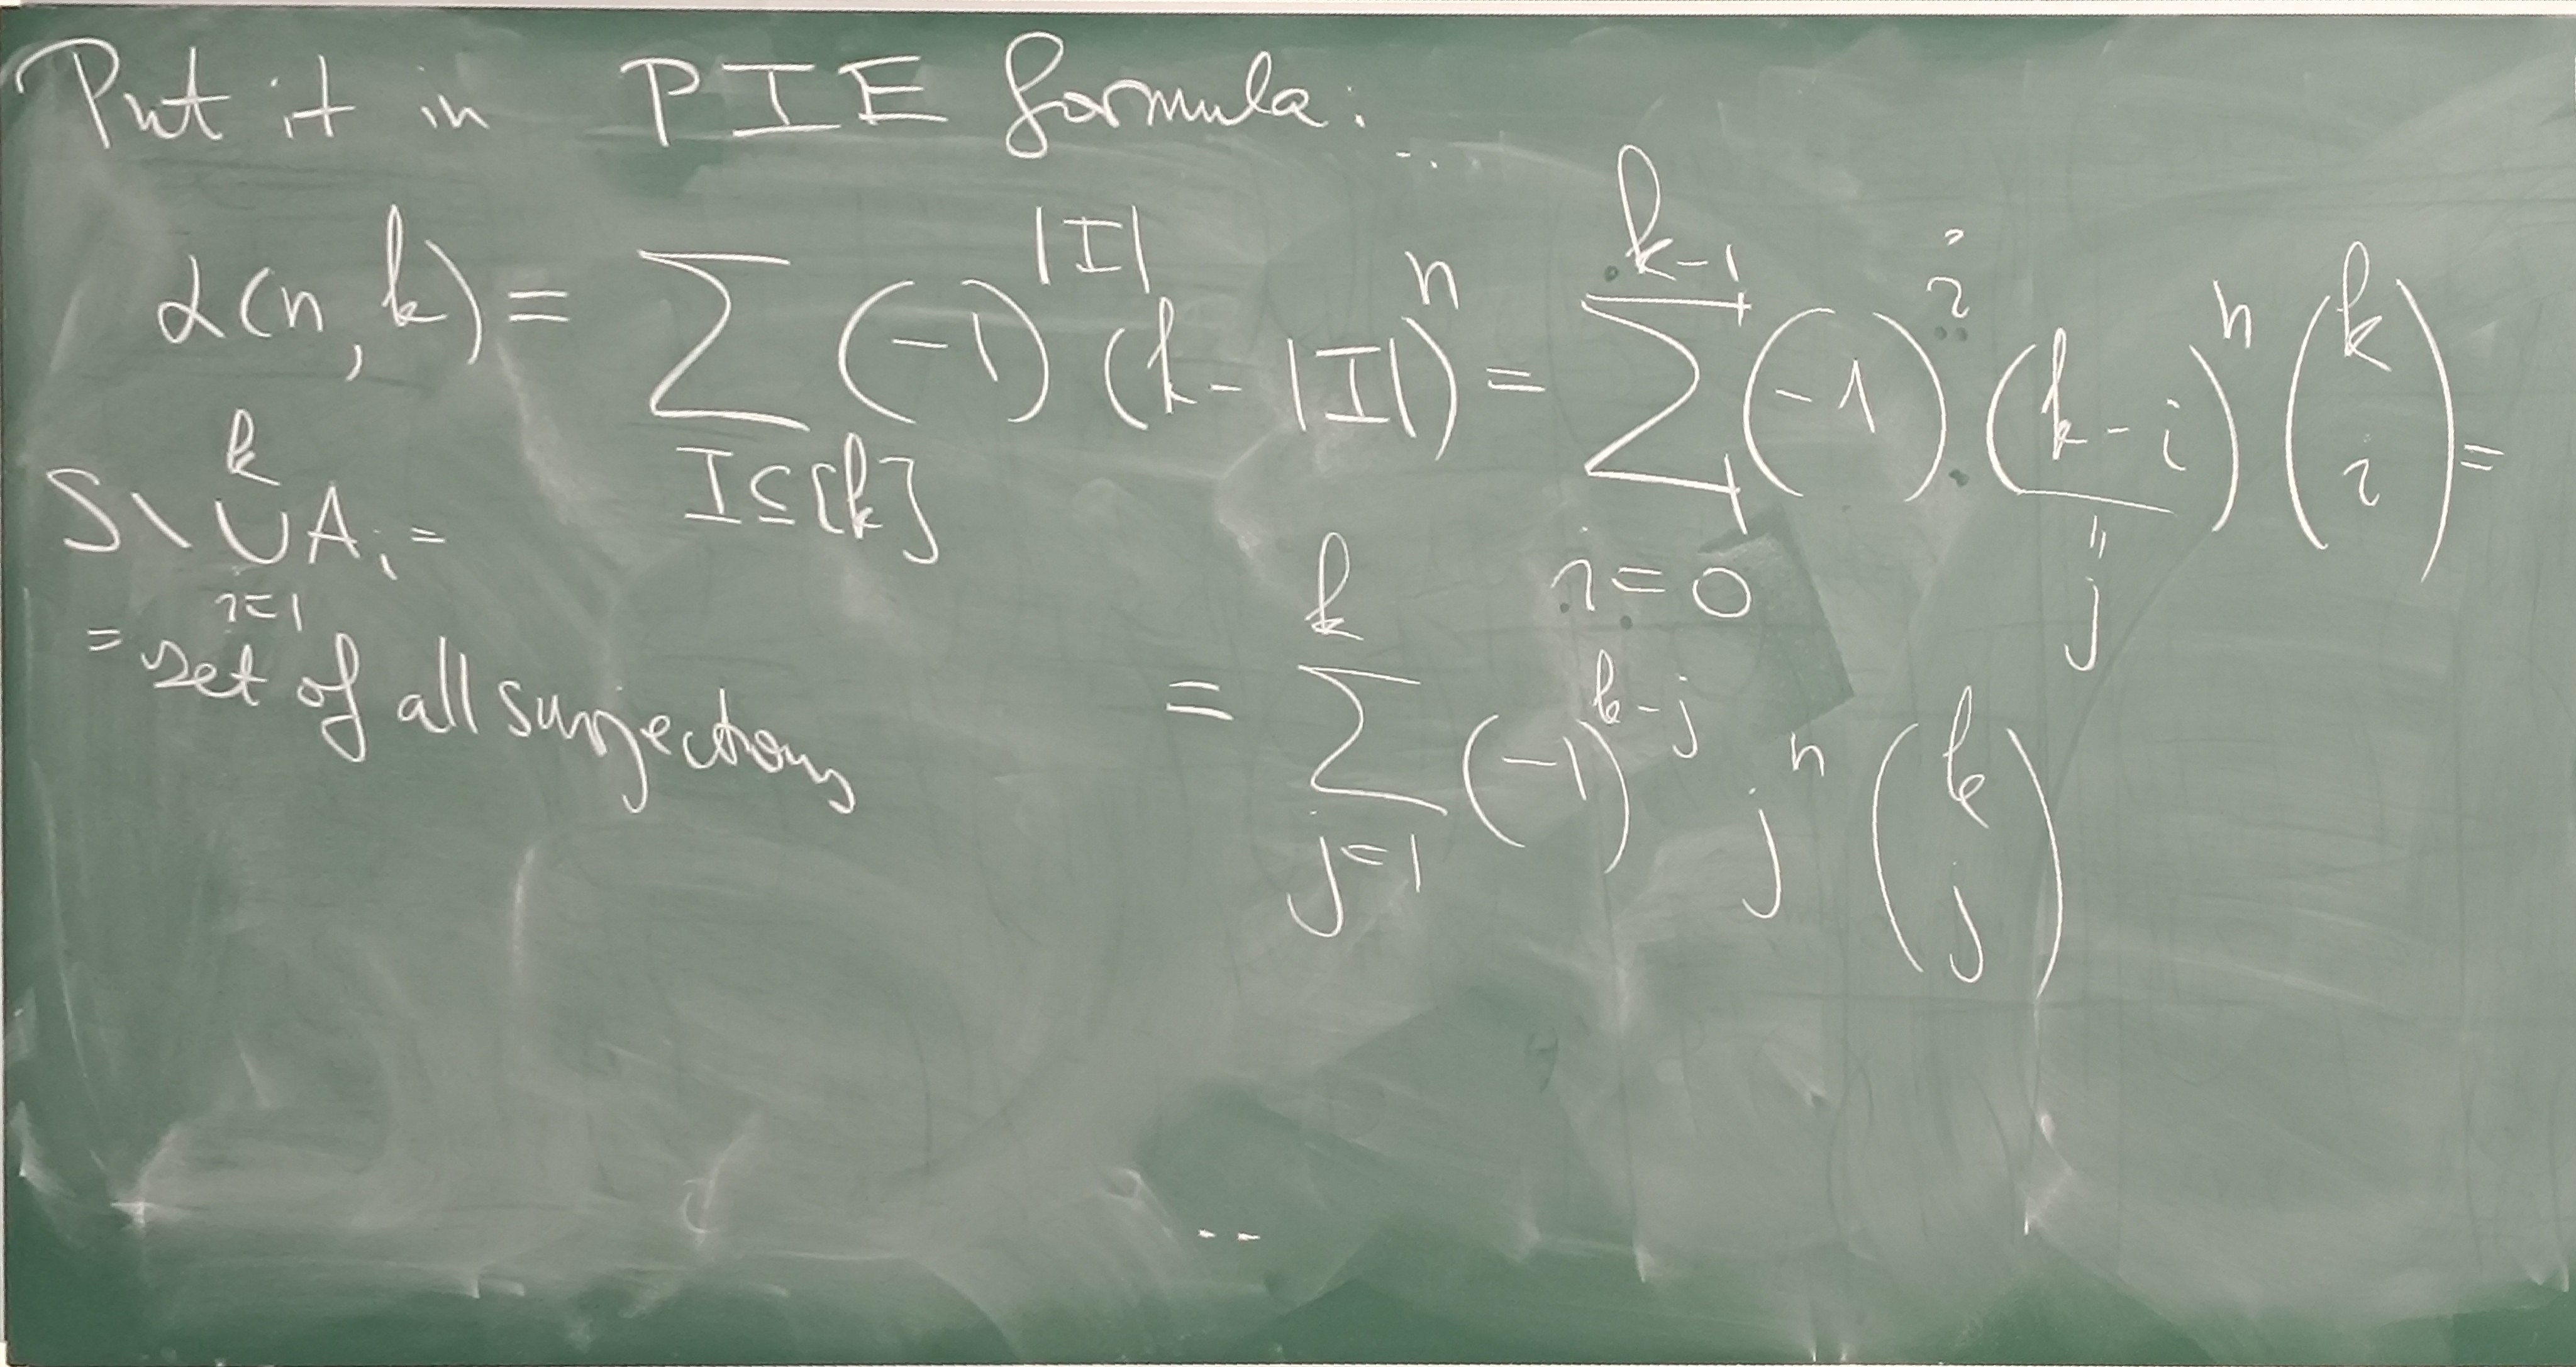 Put it in PIE formula:
α(n, k) = ∑_{I⊆[k]} (-1)^{|I|} (k-|I|)^n = ∑_{i=0}^{k-1} (-1)^i (k-i)^n \binom{k}{i} =
" j
S \ ∪_{i=1}^{k} A_i =
= set of all surjections
= ∑_{j=1}^{k} (-1)^{k-j} j^n \binom{k}{j}